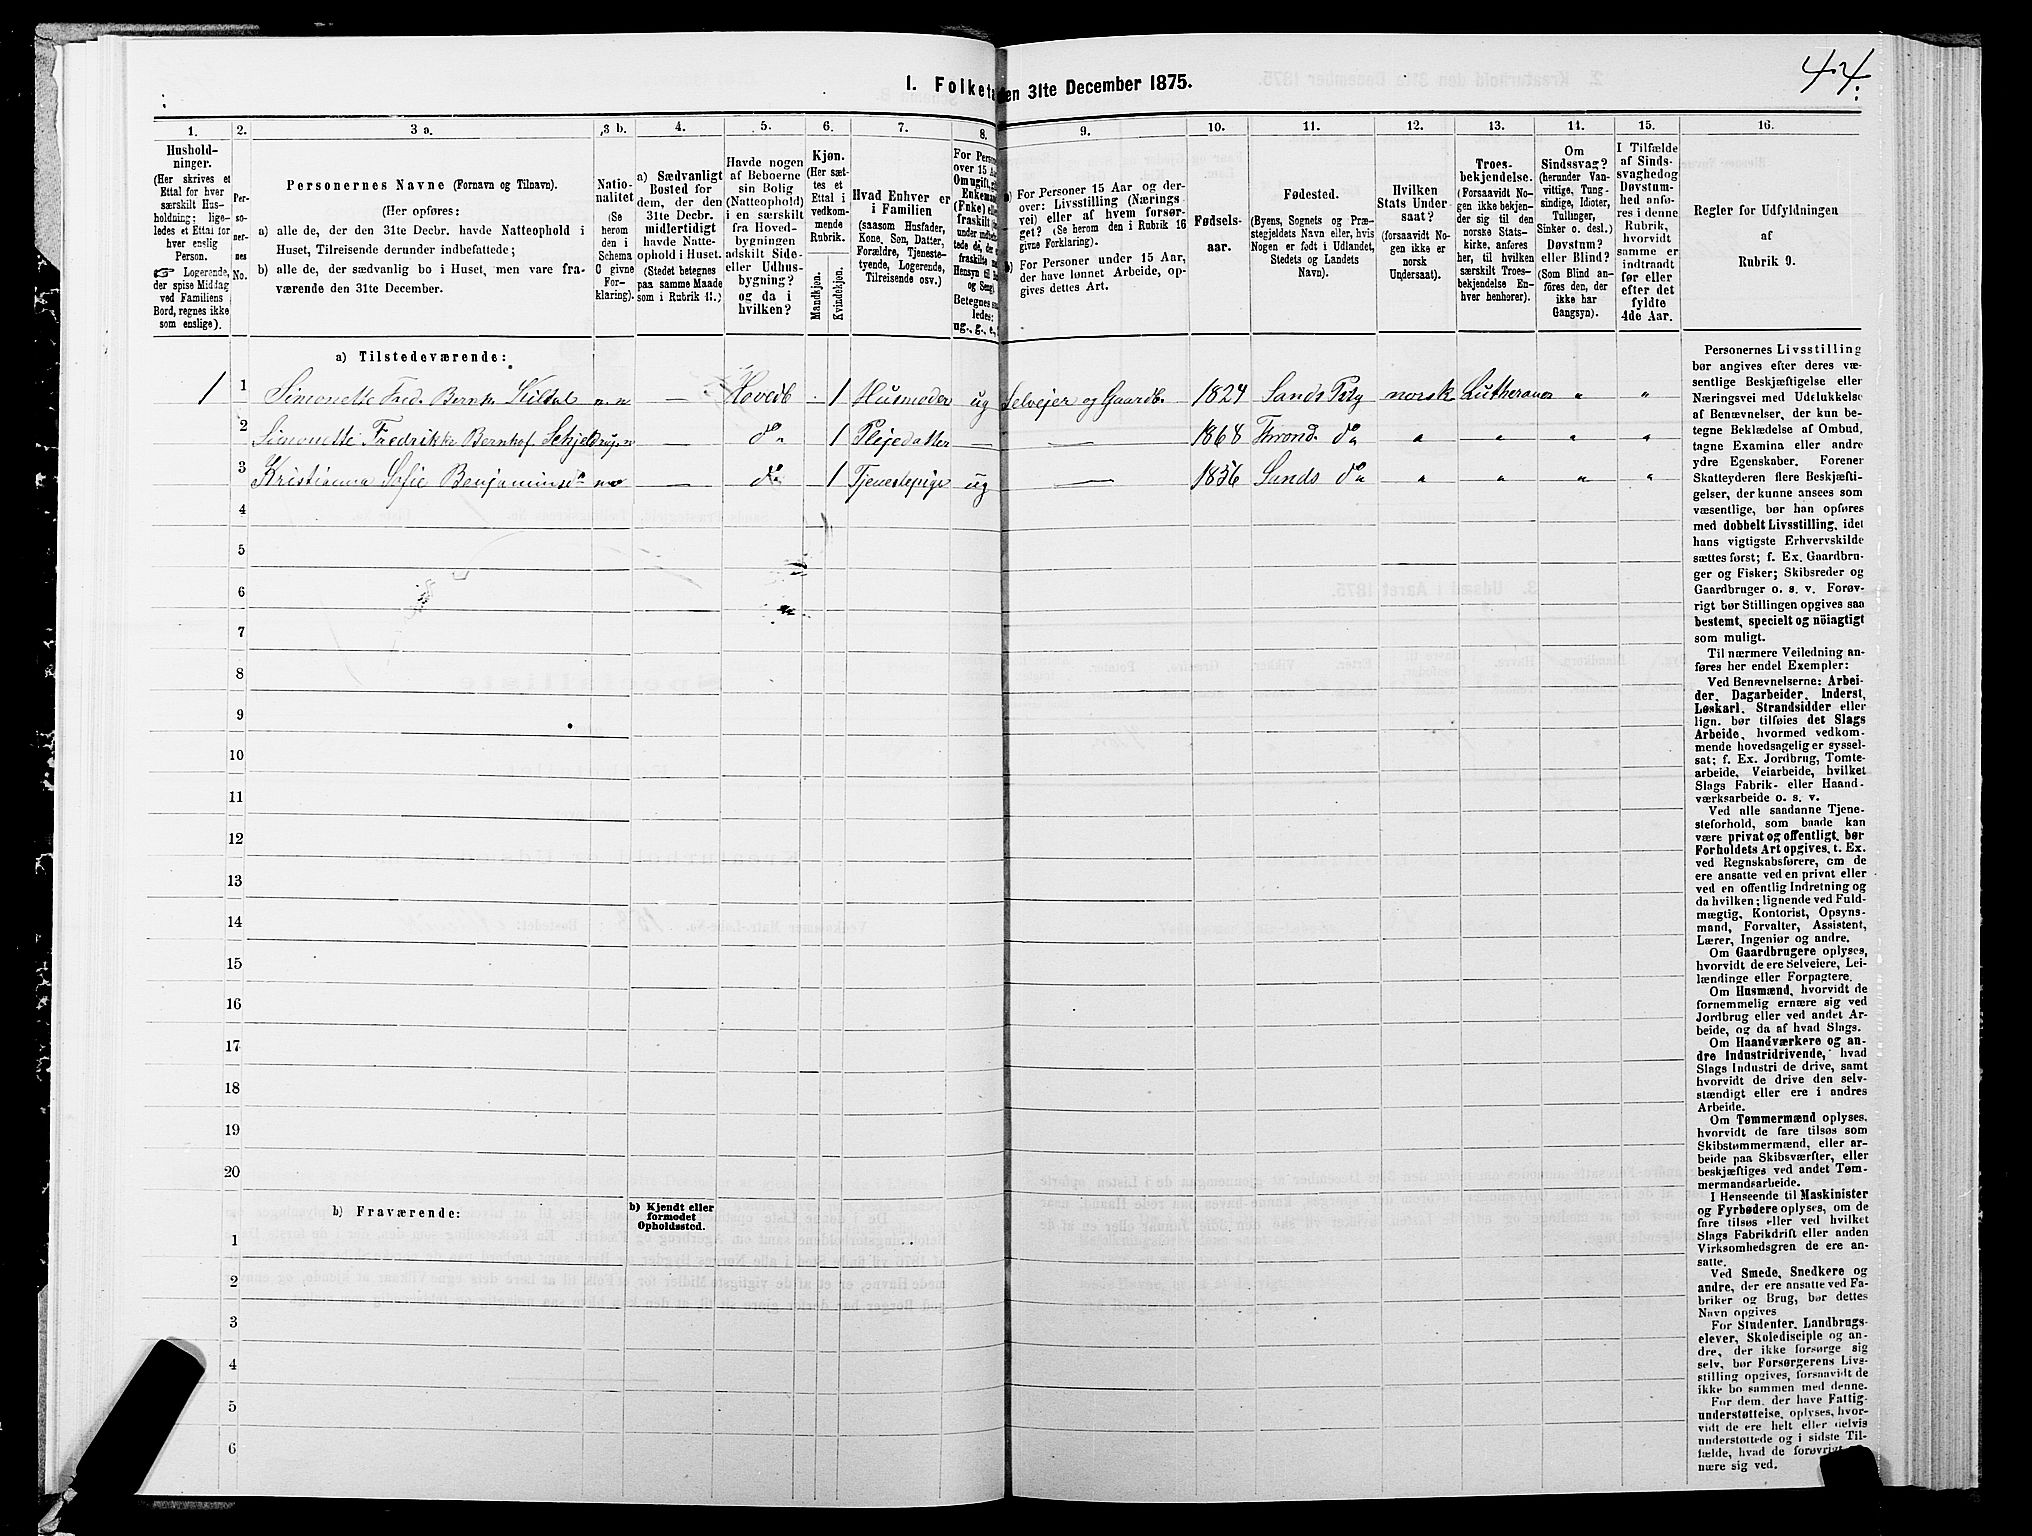 44.
I. Folketa
en 31te December 1875.
1.
2.
3 a.
3 b.
4.
5.
6.
7.
8.
9.
10.
11.
12.
13.
14.
15.
16.
Hushold-
ninger.
(Her skrives et
Ettal for hver
særskilt Hus-
holdning; lige-
ledes et Ettal for
hver enslig
Person.
☞ Logerende,
der spise Middag
ved Familiens
Bord, regnes ikke
som enslige).
Per-
so-
ner-
nes
No.
Personernes Navne (Fornavn og Tilnavn).
(Her opføres:
a) alle de, der den 31te Decbr. havde Natteophold i
Huset, Tilreisende derunder indbefattede;
b) alle de, der sædvanlig bo i Huset, men vare fra-
værende den 31te December.
Natio-
nalitet
(Se
herom
den i
Schema
C givne
For-
klaring).
a) Sædvanligt
Bosted for
dem, der den
31te Decbr.
midlertidigt
havde Natte-
ophold i Huset.
(Stedet betegnes
paa samme Maade
som i Rubrik 11.)
Havde nogen
af Beboerne
sin Bolig
(Natteophold)
i en særskilt
fra Hoved-
bygningen
adskilt Side-
eller Udhus-
bygning?
og da i
hvilken?
Kjøn.
(Her sæt-
tes et
Ettal i
vedkom-
mende
Rubrik.
Mandkjøn.
Kvindekjøn.
Hvad Enhver er
i Familien
(saasom Husfader,
Kone, Søn, Datter,
Forældre, Tjeneste-
tyende, Logerende,
Tilreisende osv.)
For Perso
over 15 Aar
Om ugift, gi
Enkeman
(Enke) elle
fraskilt
under indbefa
tede de, der e
fraskilte m
Hensyn til b
og Seng)
Betegnes s
ledes:
ug., g., e.,
a) For Personer 15 Aar og der-
over: Livsstilling (Nærings-
vei) eller af hvem forsør-
get? (Se herom den i Rubrik 16
givne Forklaring).
b) For Personer under 15 Aar,
der have lønnet Arbeide, op-
gives dettes Art.
Fødsels-
aar.
Fødested.
(Byens, Sognets og Præ-
stegjeldets Navn eller, hvis
Nogen er født i Udlandet,
Stedets og Landets
Navn).
Hvilken
Stats Under-
saat?
(forsaavidt No-
gen ikke er
norsk
Undersaat).
Troes-
bekjendelse.
(Forsaavidt No-
gen ikke bekjen-
der sig til den
norske Stats-
kirke, anføres
her, til hvilken
særskilt Troes-
bekjendelse En-
hver henhører).
Om
Sindssvag?
(herunder Van-
vittige, Tung-
sindige, Idioter,
Tullinger,
Sinker o. desl.)
Døvstum?
eller Blind?
(Som Blind an-
føres den, der
ikke har
Gangsyn).
I Tilfælde
af Sinds-
svaghed og
Døvstum-
hed anfø-
res i denne
Rubrik,
hvorvidt
samme er
indtraadt
før eller
efter det
fyldte
4de Aar.
Regler for Udfyldningen
af
Rubrik 9.
a) Tilstedeværende:
1 1 Simonette Fred. Bernh. Kildal n n — Hovedb 1 Husmoder ug Selvejer og Gaardb. 1824 Sands Pstg norsk Lutheraner " "
2 Simonette Fredrikke Bernhof Schjeldrup n — do 1 Plejedatter — — 1868 Trond. do " " " "
3 Kristianna Sofie Benjaminsd. n o — do 1 Tjenestepige ug — 1856 Sands do " " " "
4
5
6
7
8
9
10
11
12
13
14
15
16
17
18
19
20
b) Fraværende:
b) Kjendt eller
formodet
Opholdssted.
1
2
3
4
5
6
Personernes Livsstilling
bør angives efter deres væ-
sentlige Beskjæftigelse eller
Næringsvei med Udelukkelse
af Benævnelser, der kun be-
tegne Beklædelse af Ombud,
tagne Examina eller andre
ydre Egenskaber. Forener
Skatteyderen flere Beskjæfti-
gelser, der kunne ansees som
væsentlige, bør han opføres
med dobbelt Livsstilling, idet
hans vigtigste Erhvervskilde
sættes først; f. Ex. Gaardbru-
ger og Fisker; Skibsreder og
Gaardbruger o. s. v. Forøv-
rigt bør Stillingen opgives saa
bestemt, specielt og nöiagtigt
som muligt.
Til nærmere Veiledning an-
føres her endel Exempler:
Ved Benævnelserne: Arbei-
der, Dagarbeider, Inderst,
Løskarl, Strandsidder eller
lign. bør tilføies det Slags
Arbeide, hvormed vedkom-
mende hovedsagelig er syssel-
sat; f. Ex. Jordbrug, Tomte-
arbeide, Veiarbeide, hvilket
Slags Fabrik- eller Haand-
værksarbeide o. s. v.
Ved alle saadanne Tjene-
steforhold, som baade kan
være privat og offentligt, bør
Forholdets Art opgives, t. Ex.
ved Regnskabsførere, om de
ere ansatte ved en privat eller
ved en offentlig Indretning og
da hvilken; lignende ved Fuld-
mægtig, Kontorist, Opsyns-
mand, Forvalter, Assistent,
Lærer, Ingeniør og andre.
Om Gaardbrugere oplyses,
hvorvidt de ere Selveiere, Lei-
lændinge eller Forpagtere.
Om Husmænd, hvorvidt de
fornemmelig ernære sig ved
Jordbrug eller ved andet Ar-
beide, og da af hvad Slags.
Om Haandværkere og an-
dre Industridrivende, hvad
Slags Industri de drive, samt
hvorvidt de drive den selv-
stændigt eller ere i andres
Arbeide.
Om Tømmermænd oplyses,
hvorvidt de fare tilsøs som
Skibstømmermænd, eller ar-
beide paa Skibsværfter, eller
beskjæftiges ved andet Tøm-
mermandsarbeide.
I Henseende til Maskinister
og Fyrbødere oplyses, om de
fare tilsøs eller ved hvilket
Slags Fabrikdrift eller anden
Virksomhedsgren de ere an-
satte.
Ved Smede, Snedkere og
andre, der ere ansatte ved Fa-
briker og Brug, bør dettes
Navn opgives
For Studenter, Landbrugs-
elever, Skoledisciple og an-
dre, der ikke forsørge sig
selv, bør Forsørgerens Livs-
stilling opgives, forsaavidt de
ikke bo sammen med denne.
For dem, der have Fattig-
understøttelse, oplyses, hvor-
vidt de ere helt eller delvis
understøttede og i sidste Til-
fælde, hvad de forøvrigt er-
nære sig ved.